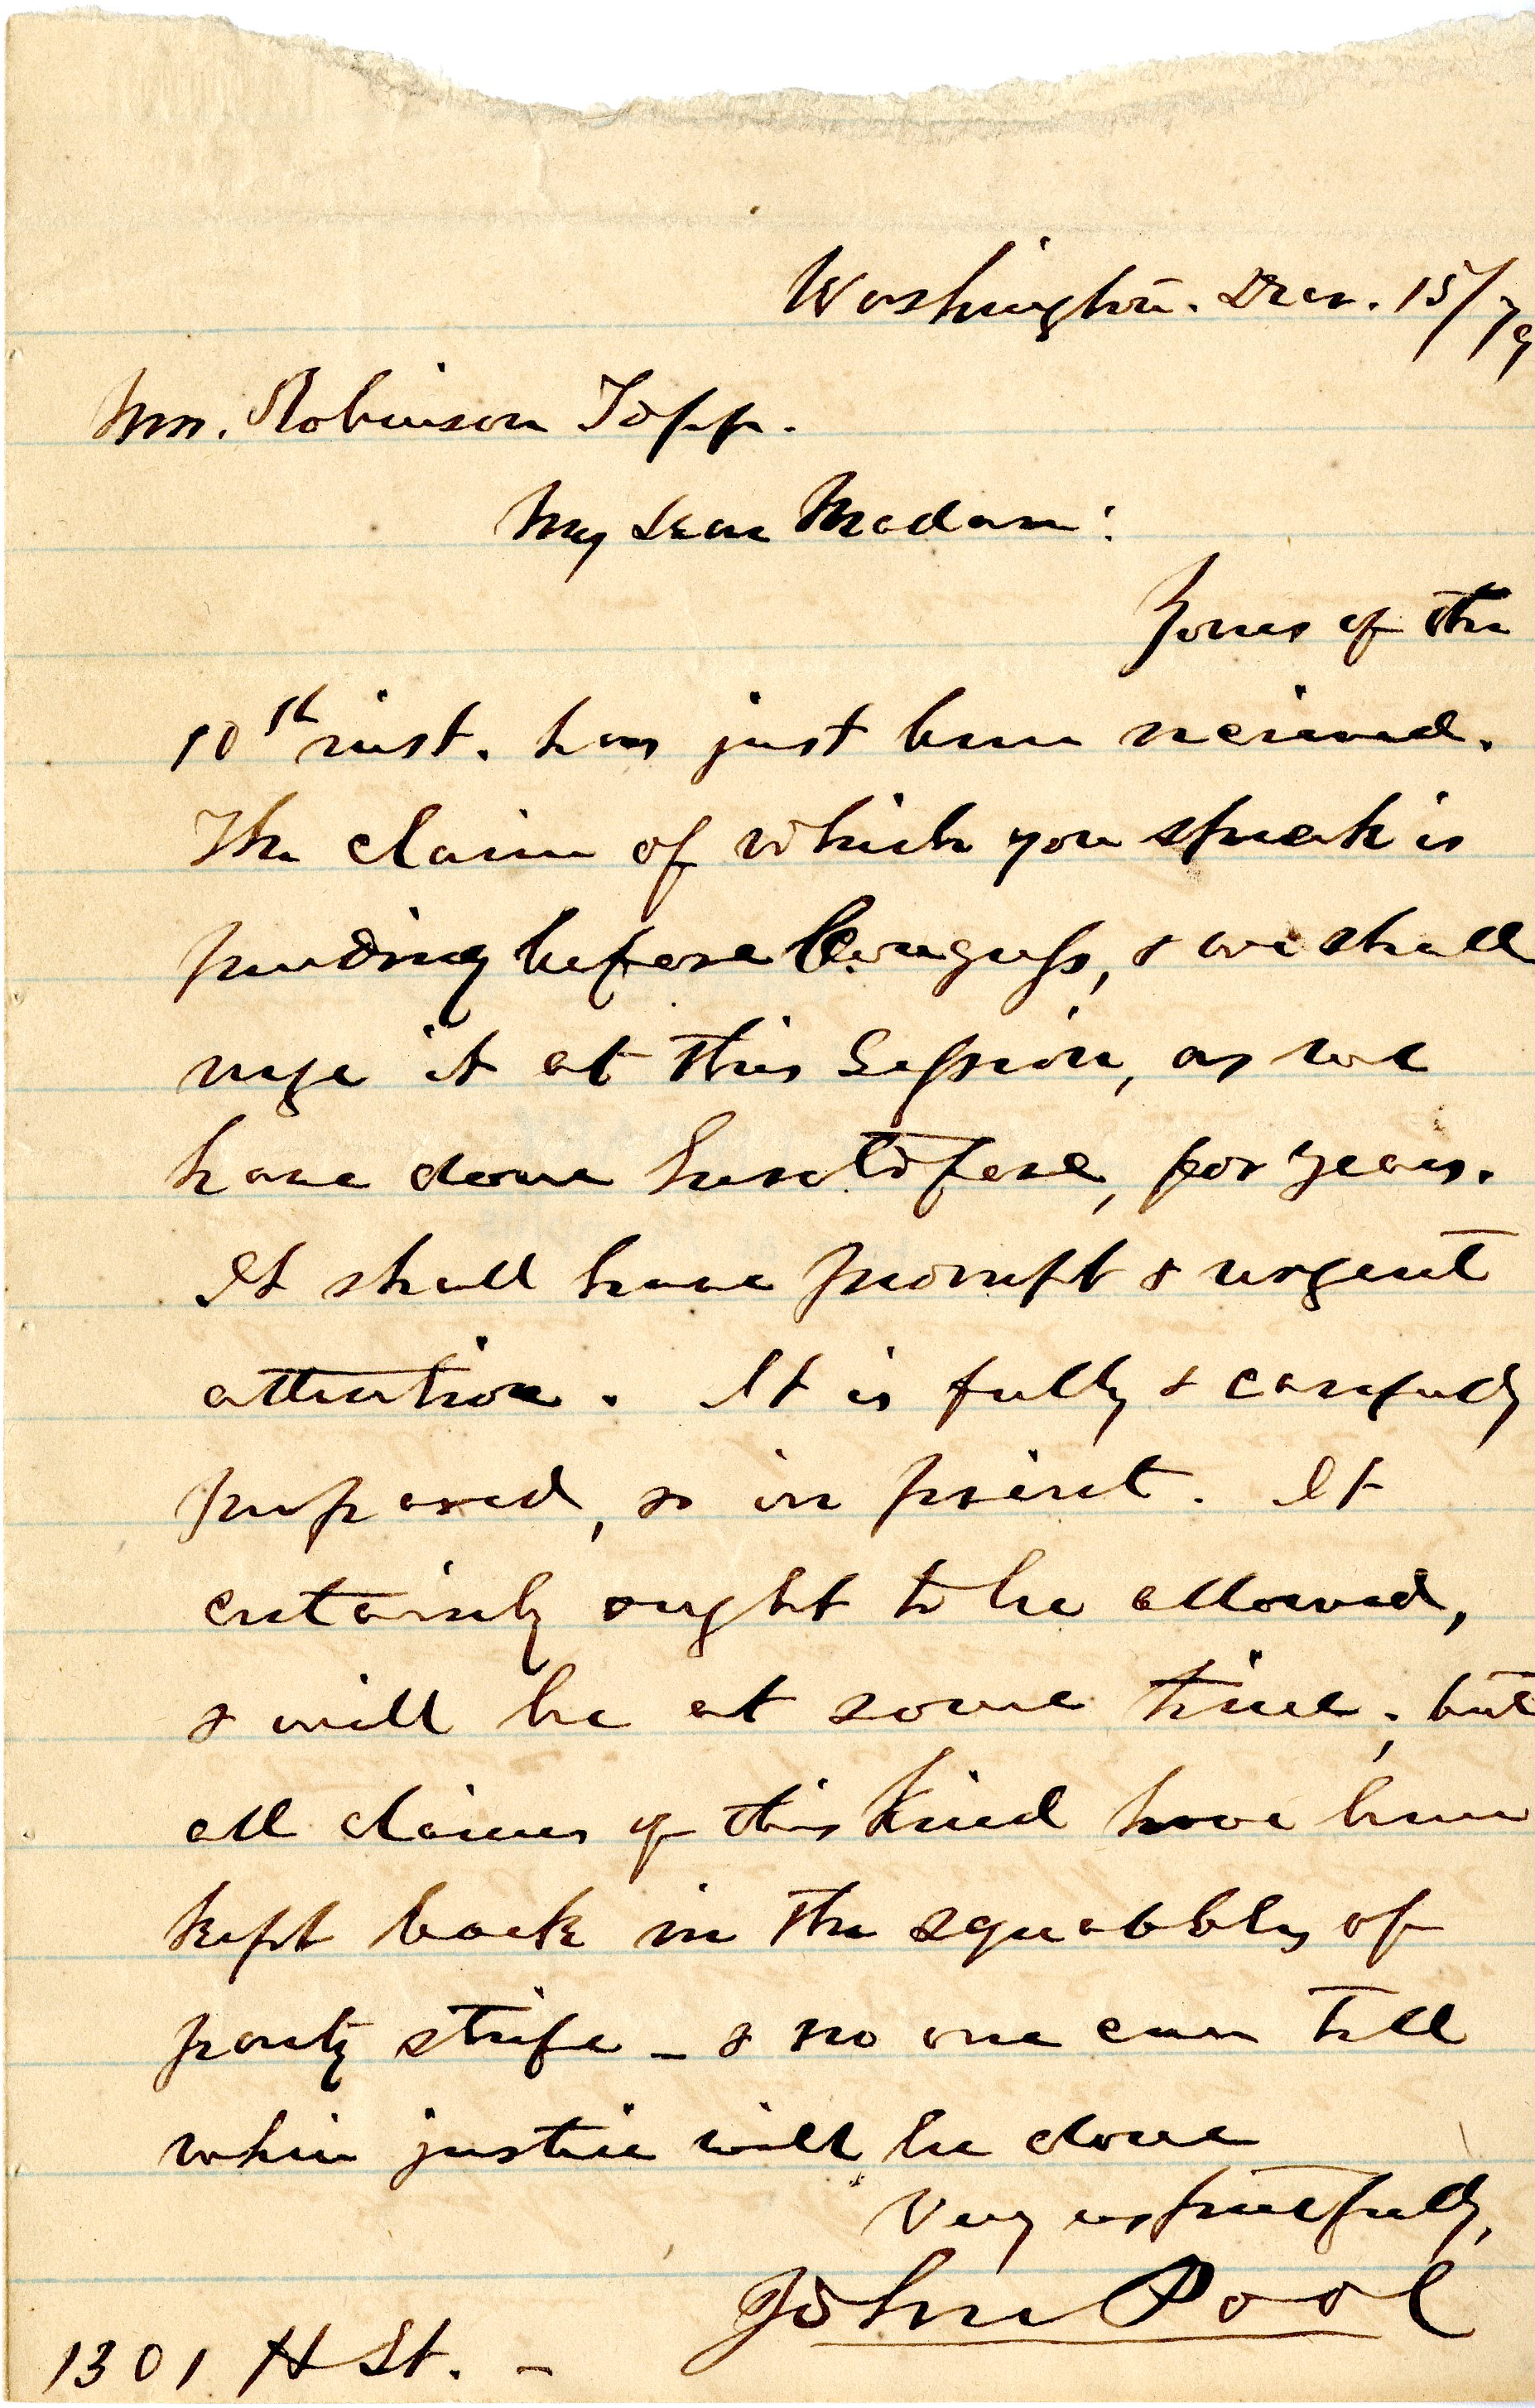 Washington. Dec. 15/79
Mrs. Robinson Topp.
My Dear Madam:
Yours of the
10th inst. has just been received.
The claim of which you speak is
pending before Congress, & we shall
urge it at this Session, as we
have done heretofore, for years.
It shall have prompt & urgent
attention. It is fully & carefully
prepared, & in print. It
certainly ought to be allowed,
& will be at some time; but
all claims of this kind have been
kept back in the squabbles of
party strife - & no one can tell
when justice will be done
Very respectfully,
John Pool
1301 H St. -